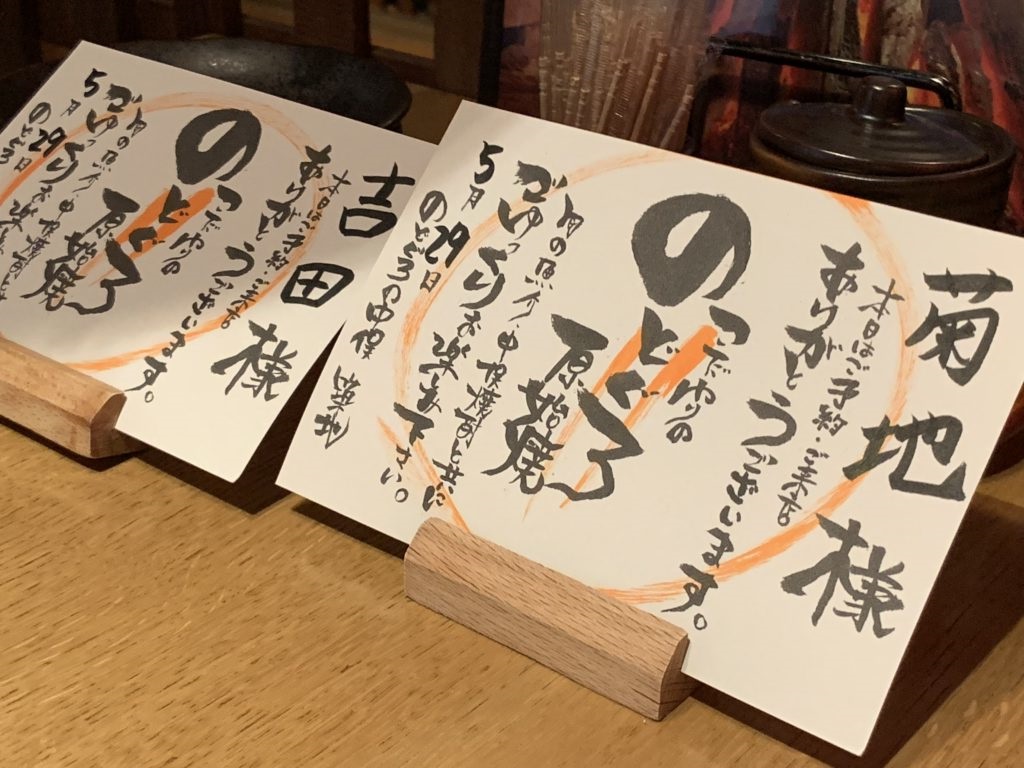 菊地様
本日はご予約・ご来店
ありがとうございます。
こだわりの
のどぐろ
原始焼
旬の魚介・
ごゆっくりお楽しみ下さい。
5月29日
のどぐろの中俣
吉田様
本日はご予約・ご来店
ありがとうございます。
こだわりの
のどぐろ
原始焼
旬の魚介・
ごゆっくりお楽
5月29日
のどぐろ